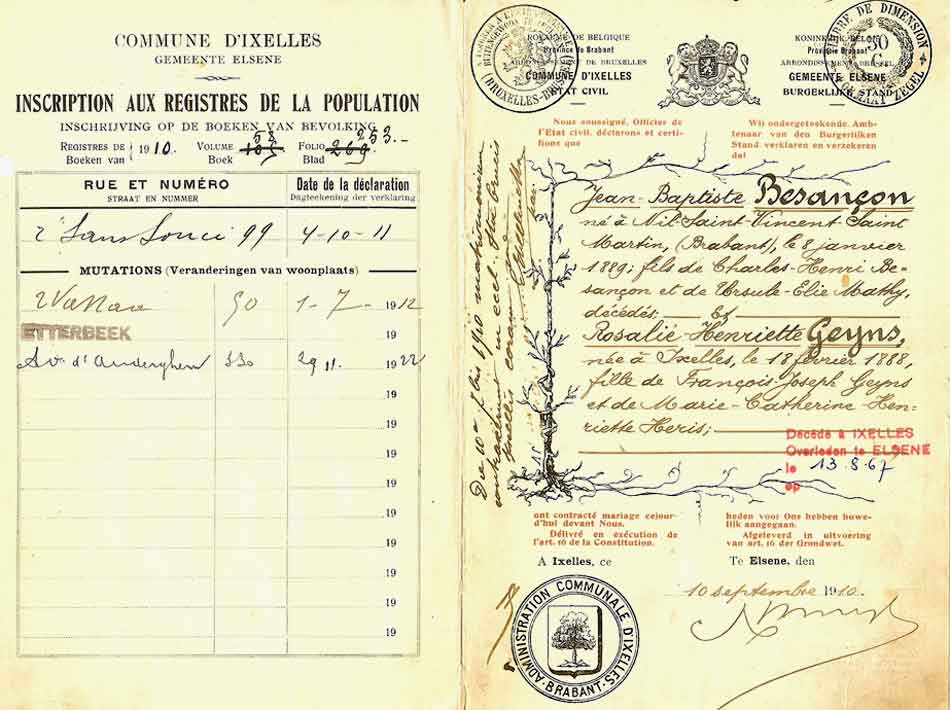 COMMUNE D'IXELLES
GEMEENTE ELSENE
INSCRIPTION AUX REGISTRES DE LA POPULATION
INSCHRIJVING OP DE BOEKEN VAN BEVOLKING
REGISTRES DE 1910. VOLUME 58 FOLIO 253.
BOEKEN VAN BOEK BLAD 269
RUE ET NUMÉRO Date de la déclaration
STRAAT EN NUMMER Dagteekening der verklaring
r Sans Souci 99 4-10-11
MUTATIONS (Veranderingen van woonplaats)
50 1-7- 1912
ETTERBEEK 19
Av. d'Auderghem 330 29 11. 1922
.19
.19
.19
.19
.19
.19
19
19
19
ROYAUME DE BELGIQUE
Province de Brabant
ARRONDISSEMENT DE BRUXELLES
COMMUNE D'IXELLES
ÉTAT CIVIL
KONINKRIJK BELGIË
Provincie Brabant
ARRONDISSEMENT BRUSSEL
GEMEENTE ELSENE
BURGERLIJKE STAND
(BRUXELLES-
TIMBRE DE DIMENSION
50
C
ZEGEL
Nous soussigné, Officier de
l'État civil, déclarons et certi-
fions que
Wij ondergeteekende Amb-
tenaar van den Burgerlijken
Stand verklaren en verzekeren
dat
Jean-Baptiste Besançon
né à Nil-Saint-Vincent-Saint
Martin, (Brabant), le 8 janvier
1889; fils de Charles-Henri Be-
sançon et de Ursule-Elie Mathy,
décédés; — Et
Rosalie-Henriette Geyns,
née à Ixelles, le 18 février 1888,
fille de François-Joseph Geyns
et de Marie-Catherine-Hen-
riette Heris;
Décédé à IXELLES
Overleden te ELSENE
le 13.8.67
op
Die 10a 7bris 1910 matrimonium
contraxerunt in eccl.
Ixellis coram
ont contracté mariage cejour-
d'hui devant Nous.
Délivré en exécution de
l'art. 16 de la Constitution.
heden voor Ons hebben huwe-
lijk aangegaan.
Afgeleverd in uitvoering
van art. 16 der Grondwet.
A Ixelles, ce Te Elsene, den
10 septembre 1910
ADMINISTRATION COMMUNALE D'IXELLES
BRABANT